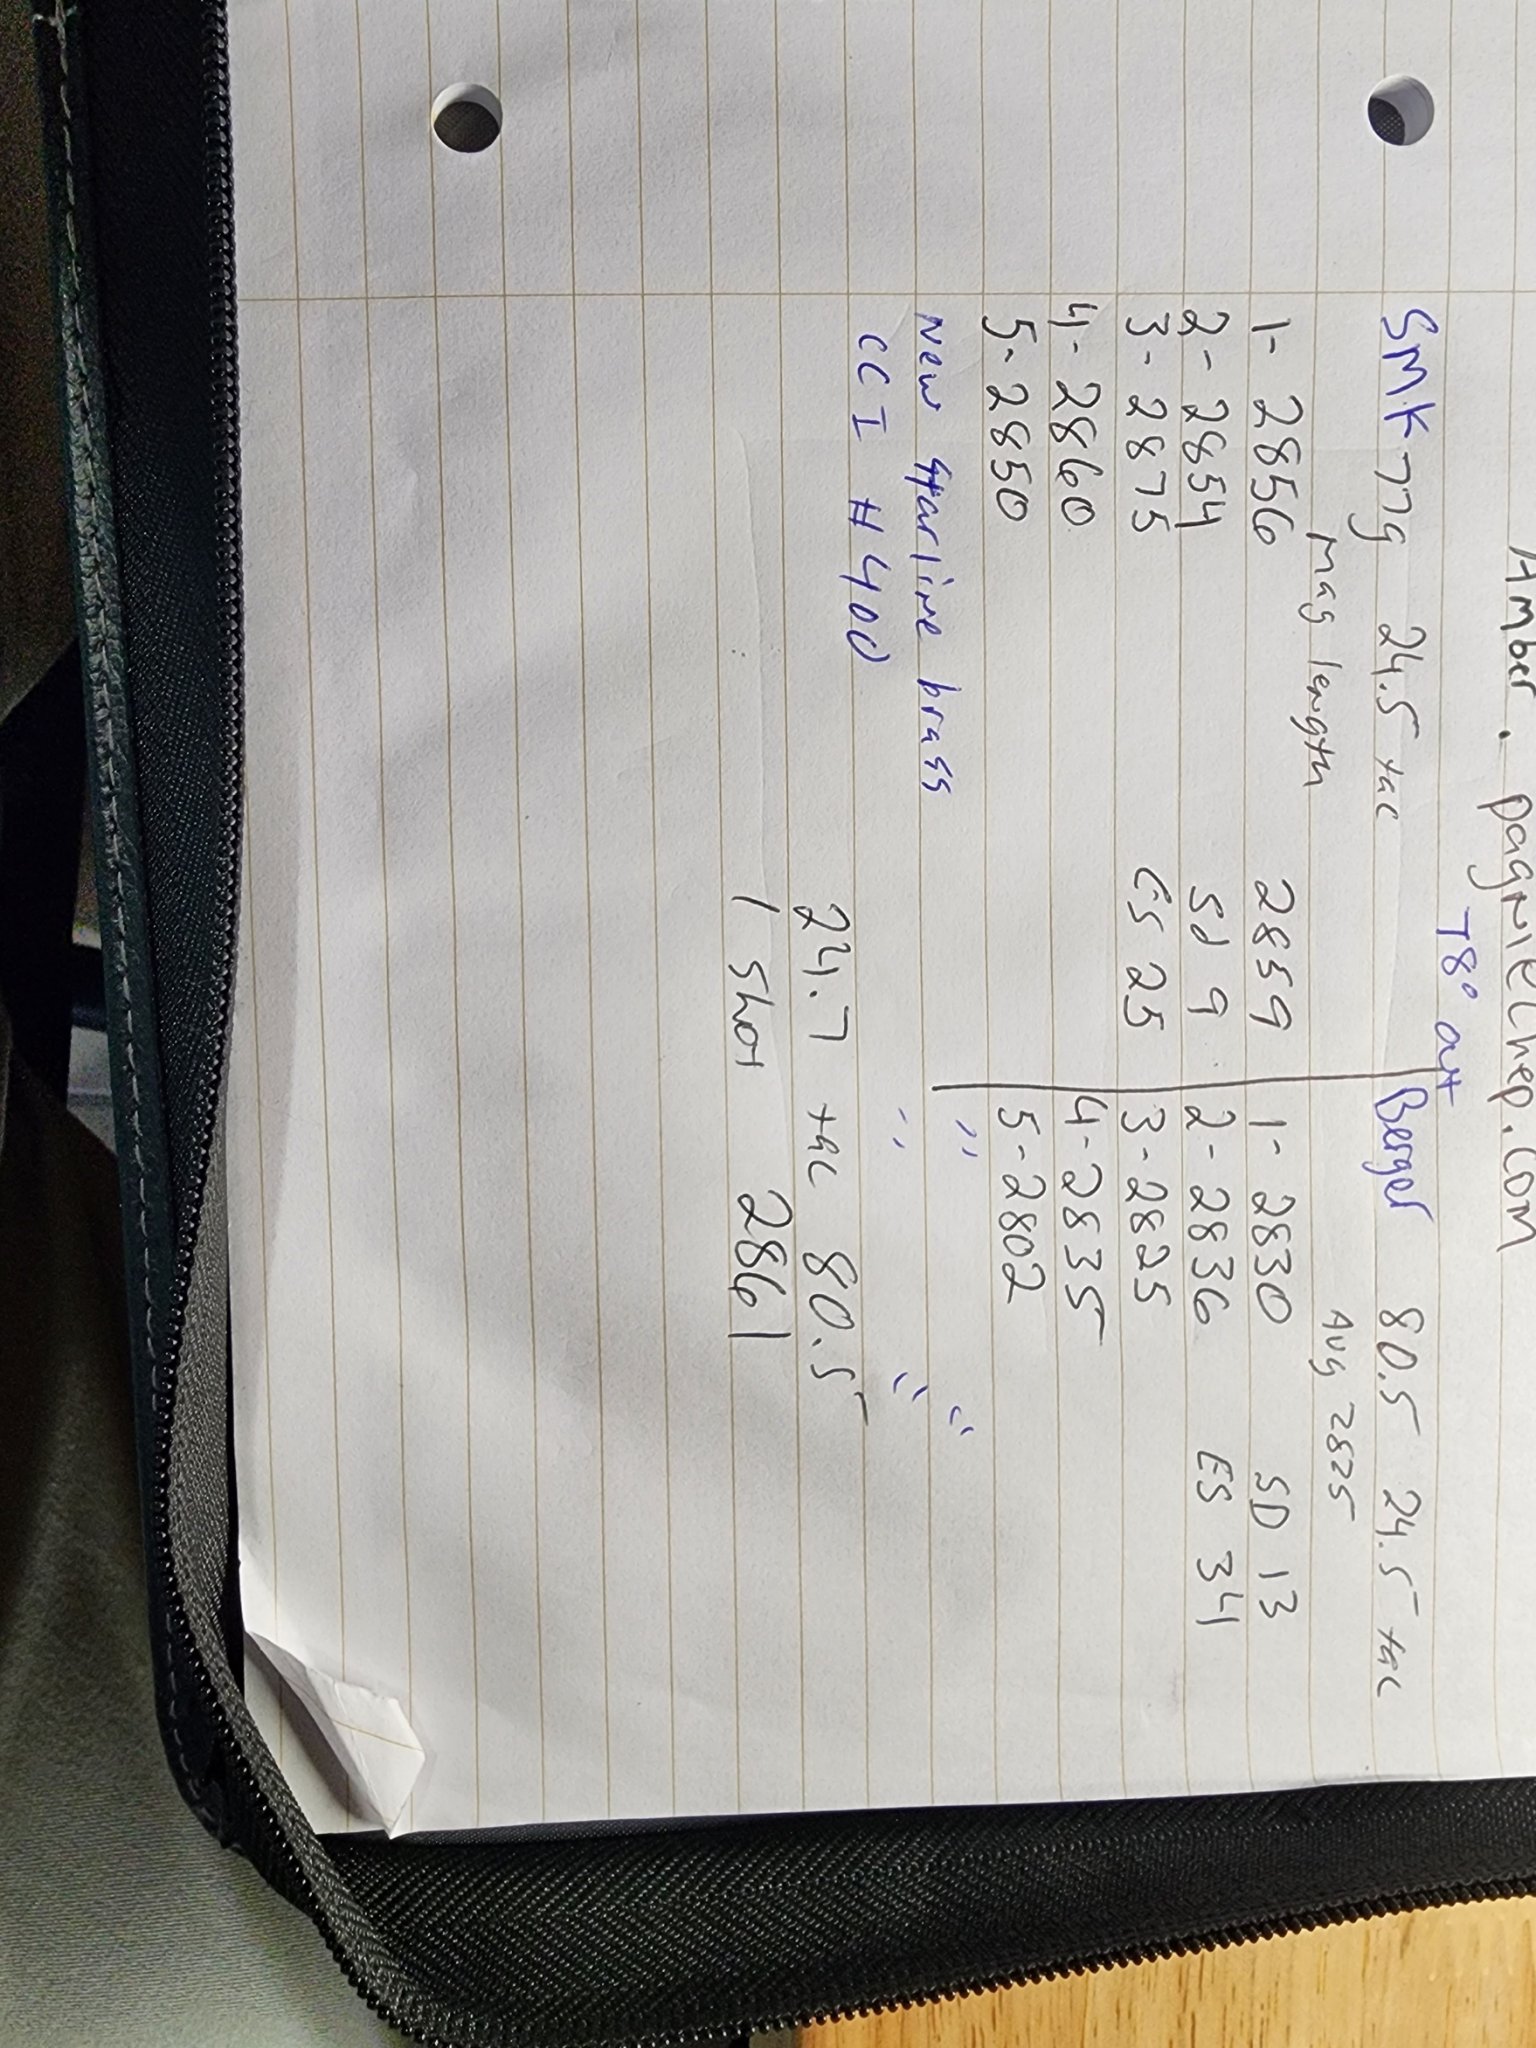 Amber . pagniello@hep.com
78° out
SMK 77g 24.5 tac
mag length
1- 2856 2859
2- 2854 Sd 9
3- 2875 ES 25
4- 2860
5- 2850
New Starline brass
CCI #400
Berger 80.5 24.5 tac
Avg 2825
1- 2830 SD 13
2- 2836 ES 34
3- 2825
4- 2835
5- 2802
" "
" "
24.7 tac 80.5
1 shot 2861